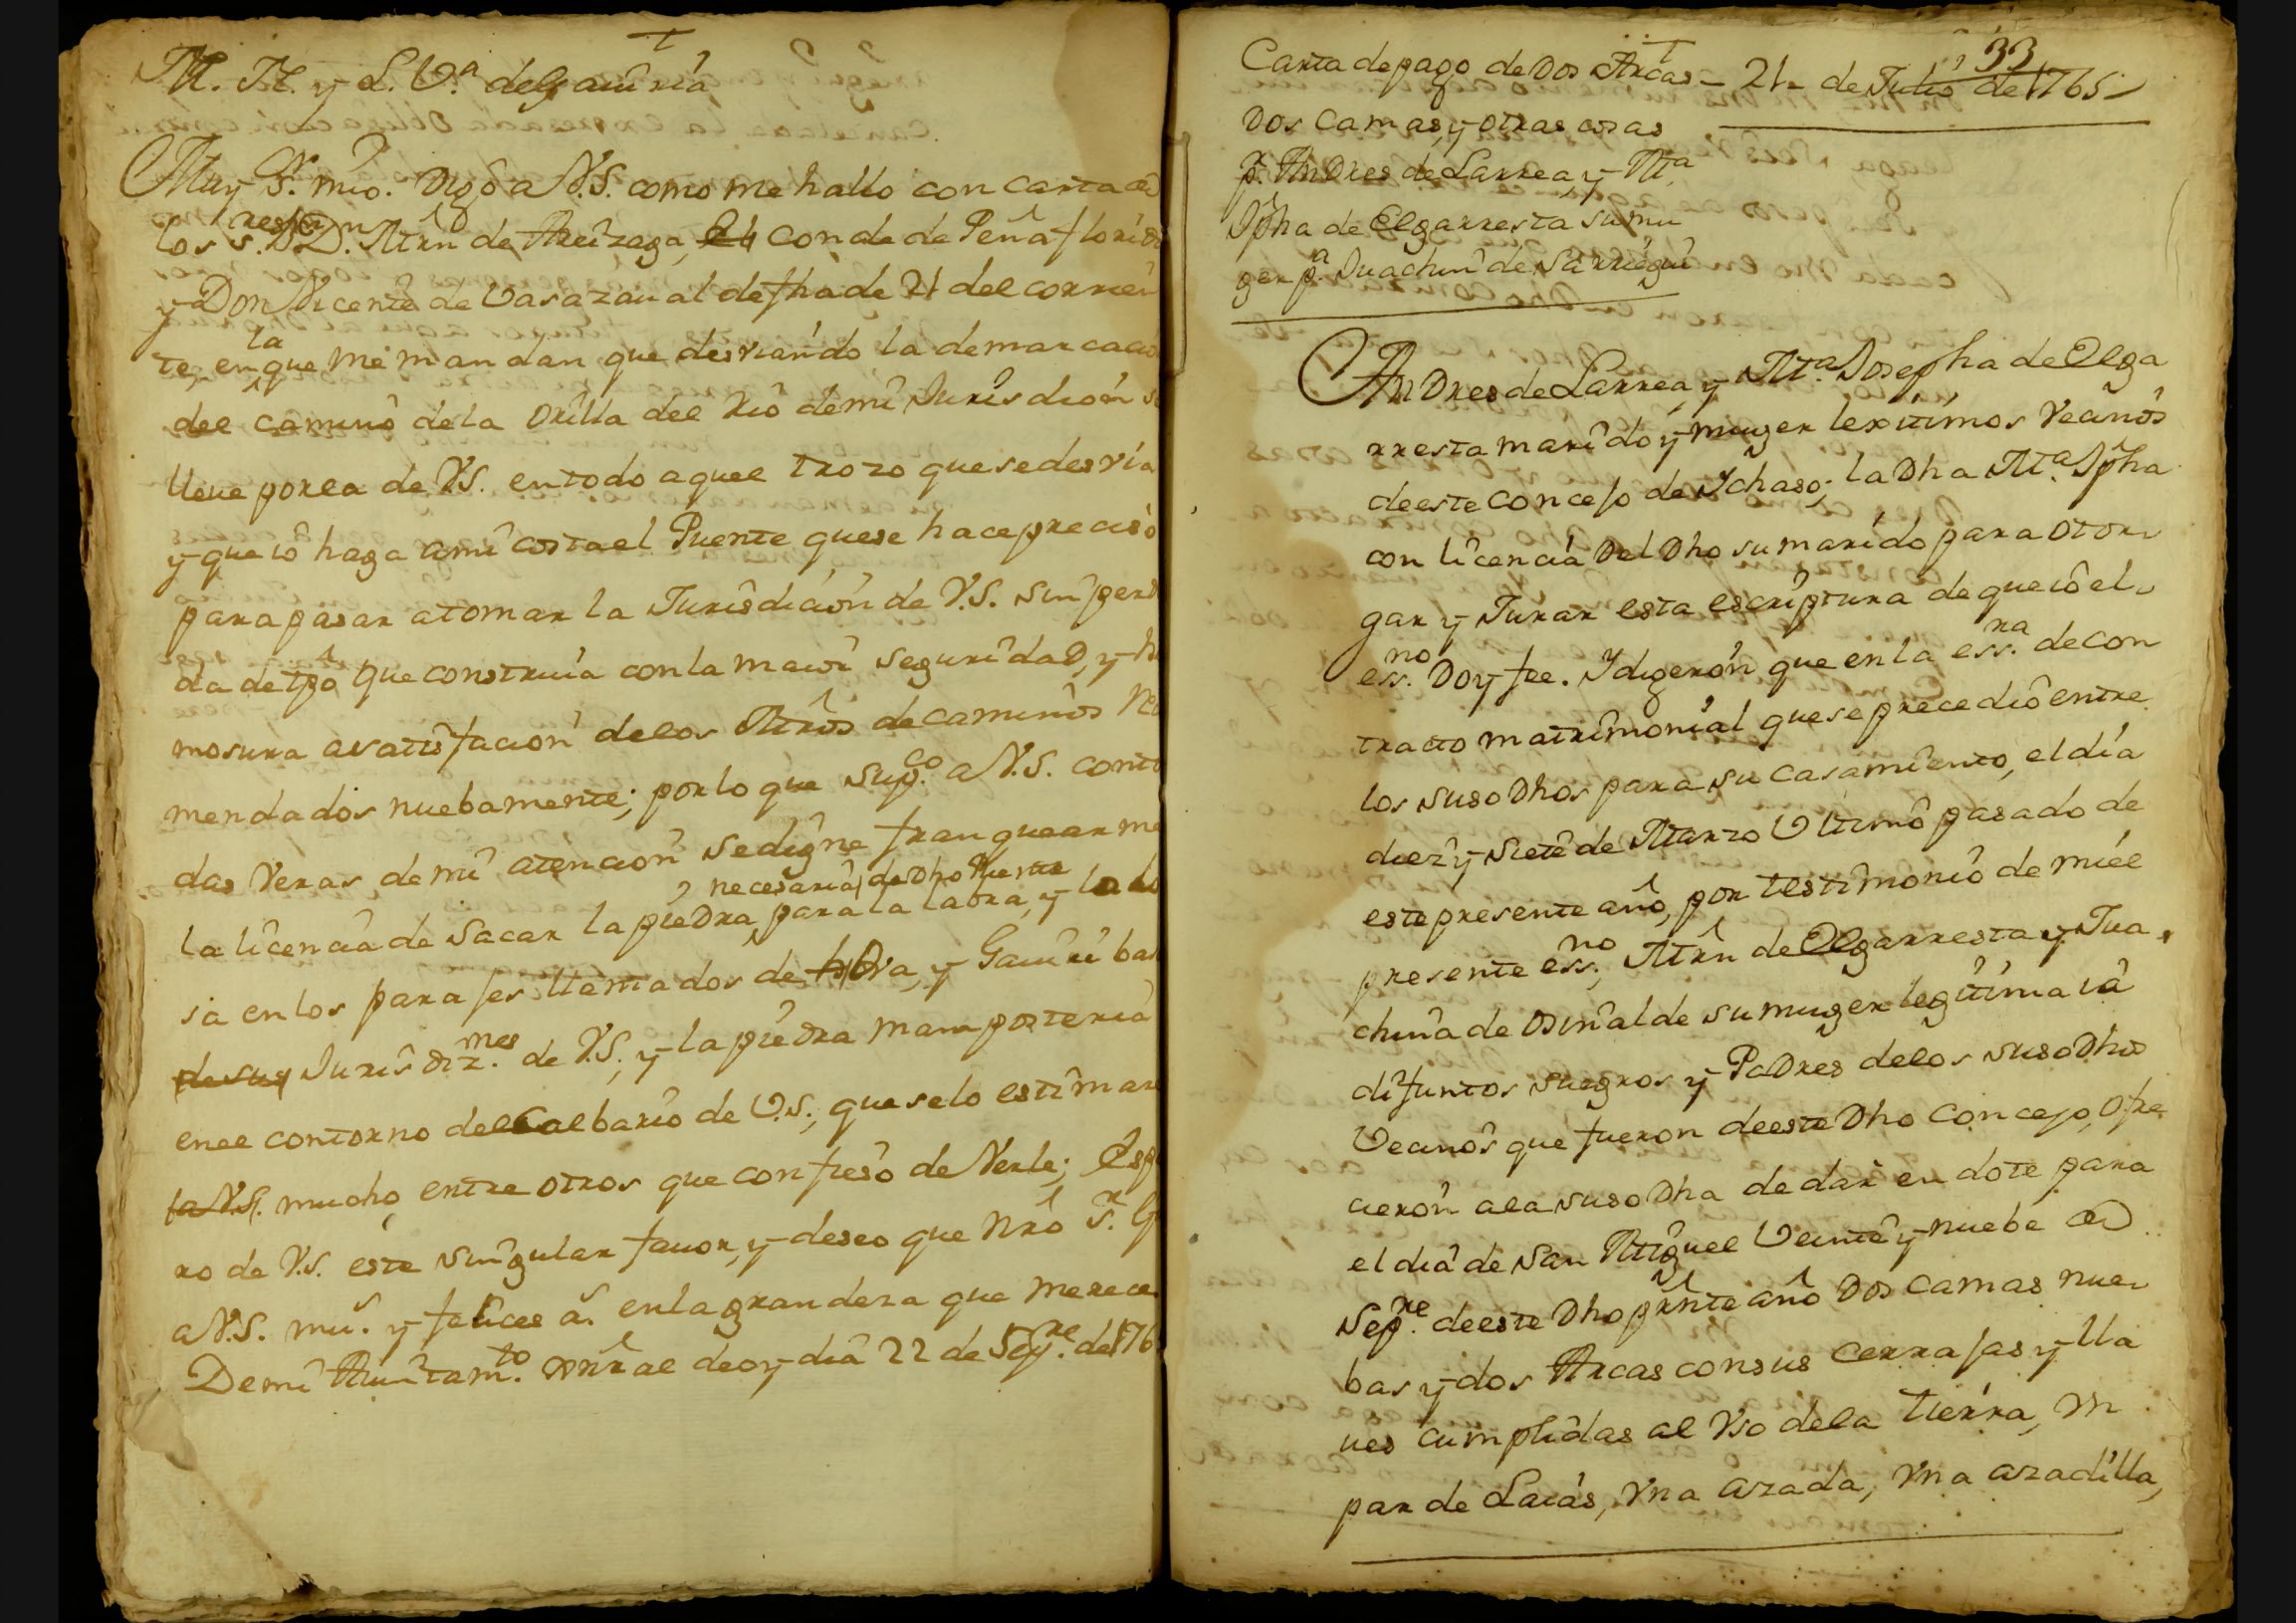 M. N. y L. V.ª de Gauiria
Muy S.r mio. Digo a V.S. como me hallo con carta de
los s.res D.n Mrn de Areizaga, Conde de Peñaflorida
y Don Vicente de Vasazaual de fha de 21 del corrien
te, en la que me mandan que desviando la demarcacio
del camino de la orilla del Rio de mi Jurisdion se
lleue por la de V.S. en todo aquel trozo que se desvia
y que io haga a mi costa el Puente que se hace preciso
para pasar a tomar la Jurisdicion de V.S. sin perdi
da de tpo que construia con la maior seguridad, y her
mosura a satisfacion de los Mros de caminos reco
mendados nuebamente; por lo que sup.co a V.S. con to
das Veras de mi atencion se digne franquearme
la licencia de sacar la piedra necesaria de dho Puente para la labra, y
sia en los parajes llamados de y Gauiri bas
Jurisdiz.nes de V.S., y la piedra mamposteria
en el contorno del Calbario de V.S., que se lo estimare
mucho entre otros que confieso de Verle; Espe
ro de V.S. este singular fauor, y deseo que Nro S.r G
a V.S. mu.s y felices a.s en la grandeza que merece
De mi Aiuntam.to Gnral de oy dia 22 de Sep.re de 176
33
Carta de pago de Dos Arcas – 21 de Julio de 1765
Dos camas, y otras cosas
p.r Andres de Larrea, y M.ª
Jpha de Elgarresta su mu
ger p.ª Juachin de Sarriegui
Andres de Larrea, y M.ª Josepha de Elga
rresta marido y muger lexitimos Vecinos
de este concejo de Ychaso; la Dha M.ª Jpha
con licencia del Dho su marido para otor
gar y Jurar esta escriptura de que io el
ess.no Doy fee. Y digeron que en la ess.ra de con
tracto matrimonial que se precedio entre
los suso Dhos para su casamiento, el dia
diez y siete de Marzo Ultimo pasado de
este presente año, por testimonio de mi el
presente ess.no, Mrn de Elgarresta y Jua
china de Osinalde su muger legitima ia
difuntos suegros y Padres de los suso Dhos
Vecinos que fueron de este Dho concejo, ofre
cieron a la suso Dha de dar en dote para
el dia de San Miguel Veinte y nuebe de
Sep.re de este Dho prnte año Dos camas nue
bas y dos Arcas con sus cerrajas y lla
ues cumplidas al Vso de la tierra, Vn
par de Laias, Vna azada, Vna azadilla,